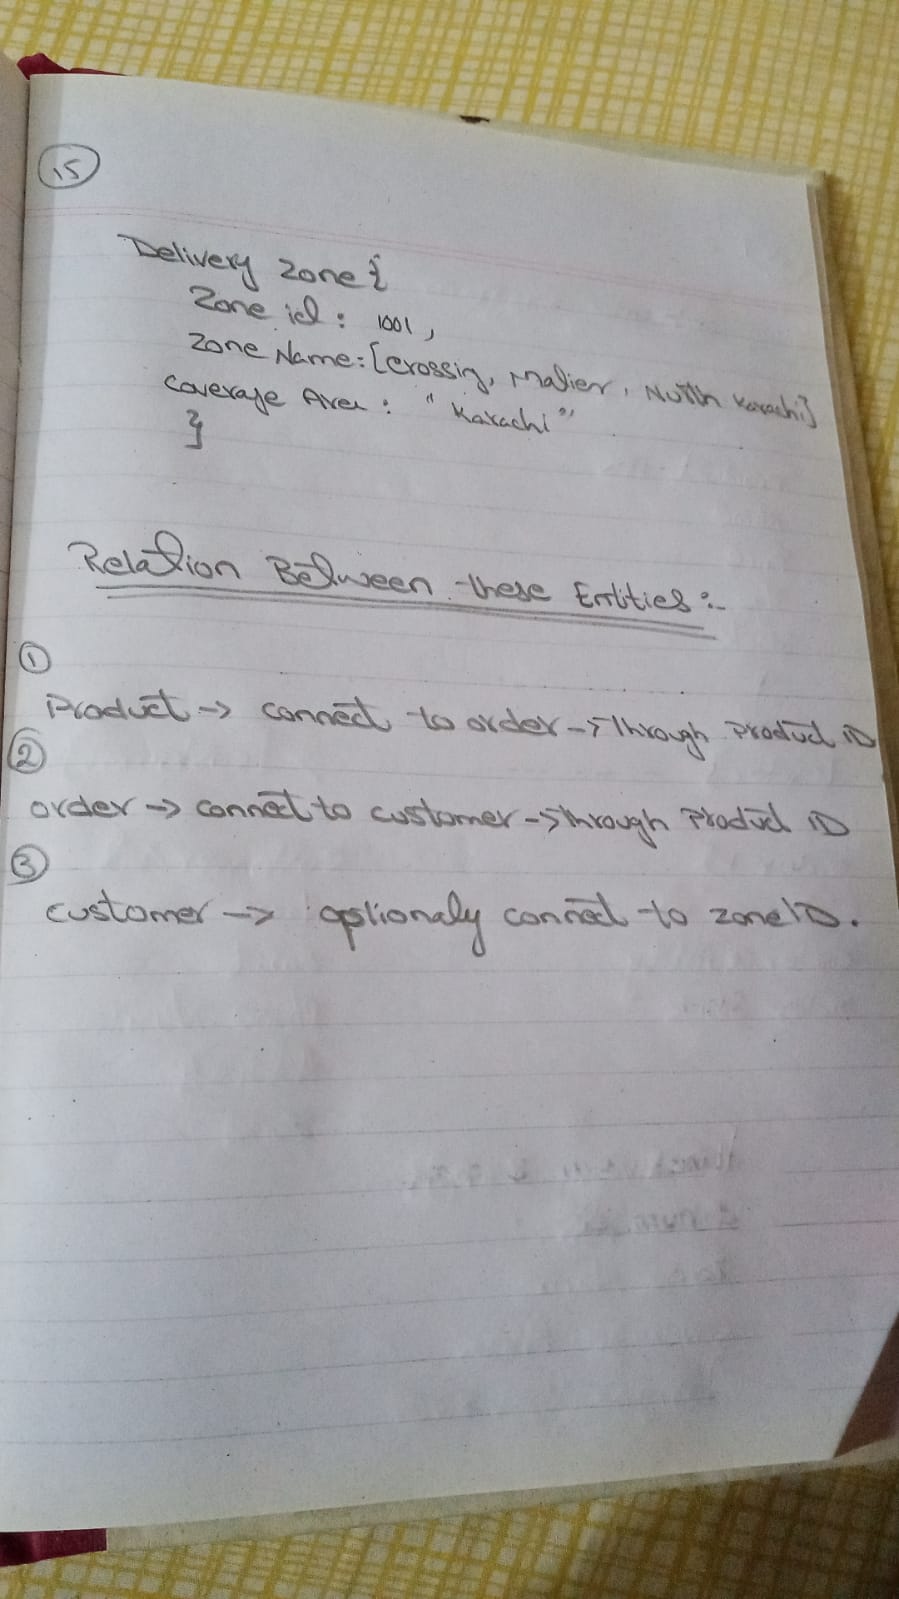 15
Delivery Zone {
Zone id : 1001 ,
Zone Name : [crossing, Malier, North Karachi]
Coverage Area : "Karachi"
}
Relation Between these Entities :-
1
Product -> connect to order -> Through Product ID
2
order -> connect to customer -> Through Product ID
3
customer -> optionaly connect to zone ID.